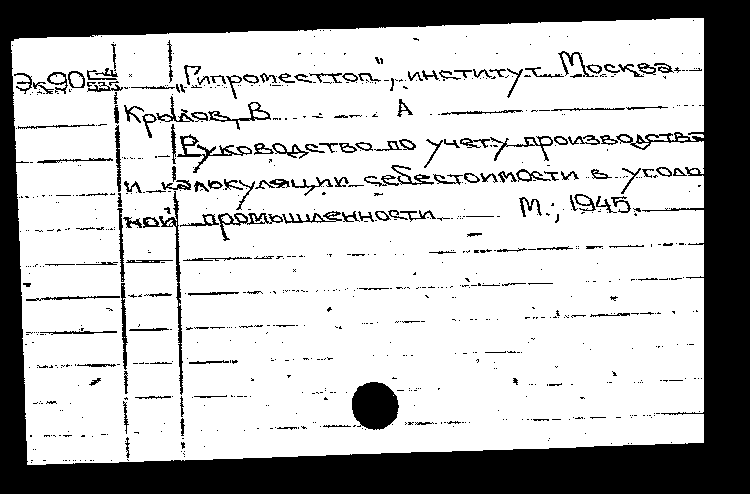 Эк90 „Гипроместтоп", институт. Москва.
Крылов, В А
Руководство по учету производства
и калькуляции себестоимости в уголь
ной промышленности М.; 1945.